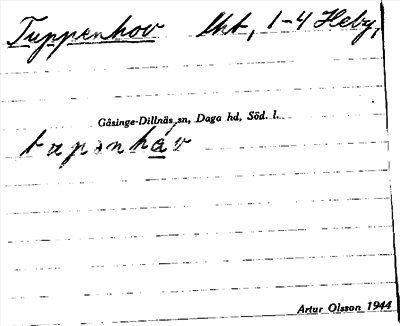 Tuppenhov lht, 1-4 Heby,
Gåsinge-Dillnäs sn, Daga hd, Söd. l.
tupənhåv
Artur Olsson 1944